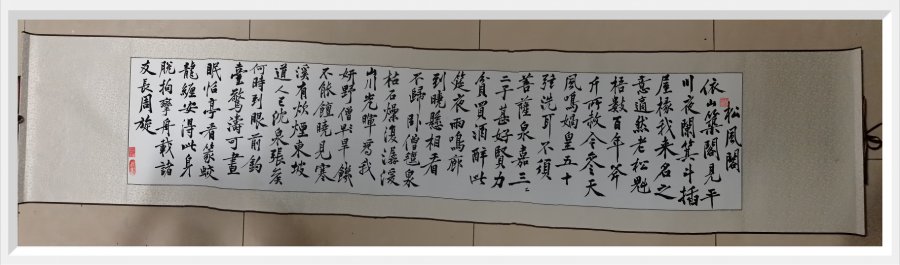 松風閣
依山築閣見平
川夜闌箕斗插
屋椽我來名之
意適然老松魁
梧數百年斧
斤所赦今參天
風鳴媧皇五十
弦洗耳不須
菩薩泉嘉二
三子甚好賢力
貧買酒醉此
筵夜雨鳴廊
到曉懸相看
不歸卧僧氊泉
枯石燥復潺湲
山川光暉為我
妍野僧早饑
不能饘曉見寒
溪有炊煙東坡
道人已沈泉張侯
何時到眼前釣
臺驚濤可晝
眠怡亭看篆蛟
龍纏安得此身
脫拘攣舟載諸
友長周旋